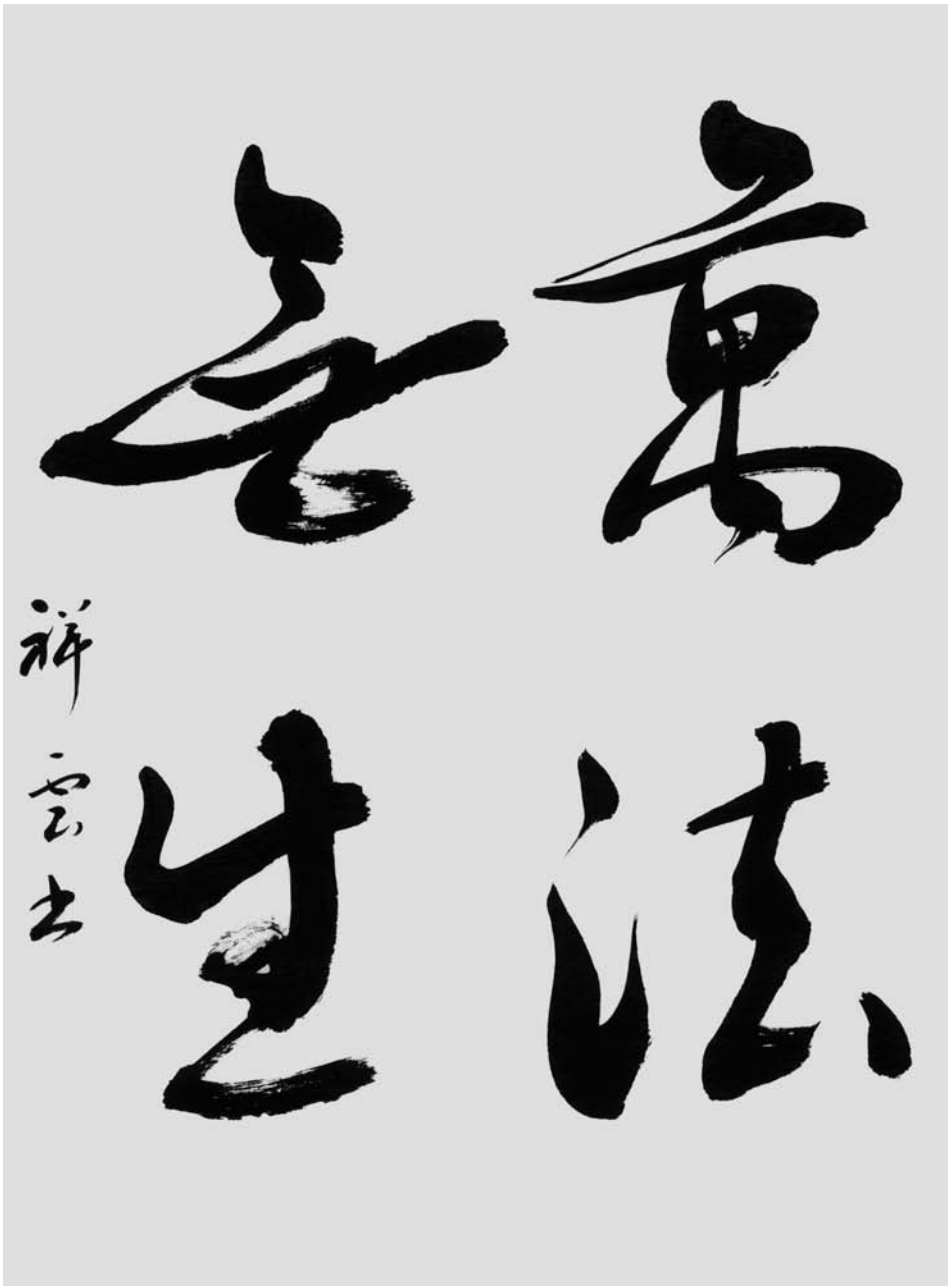 萬法
無生
祥雲书